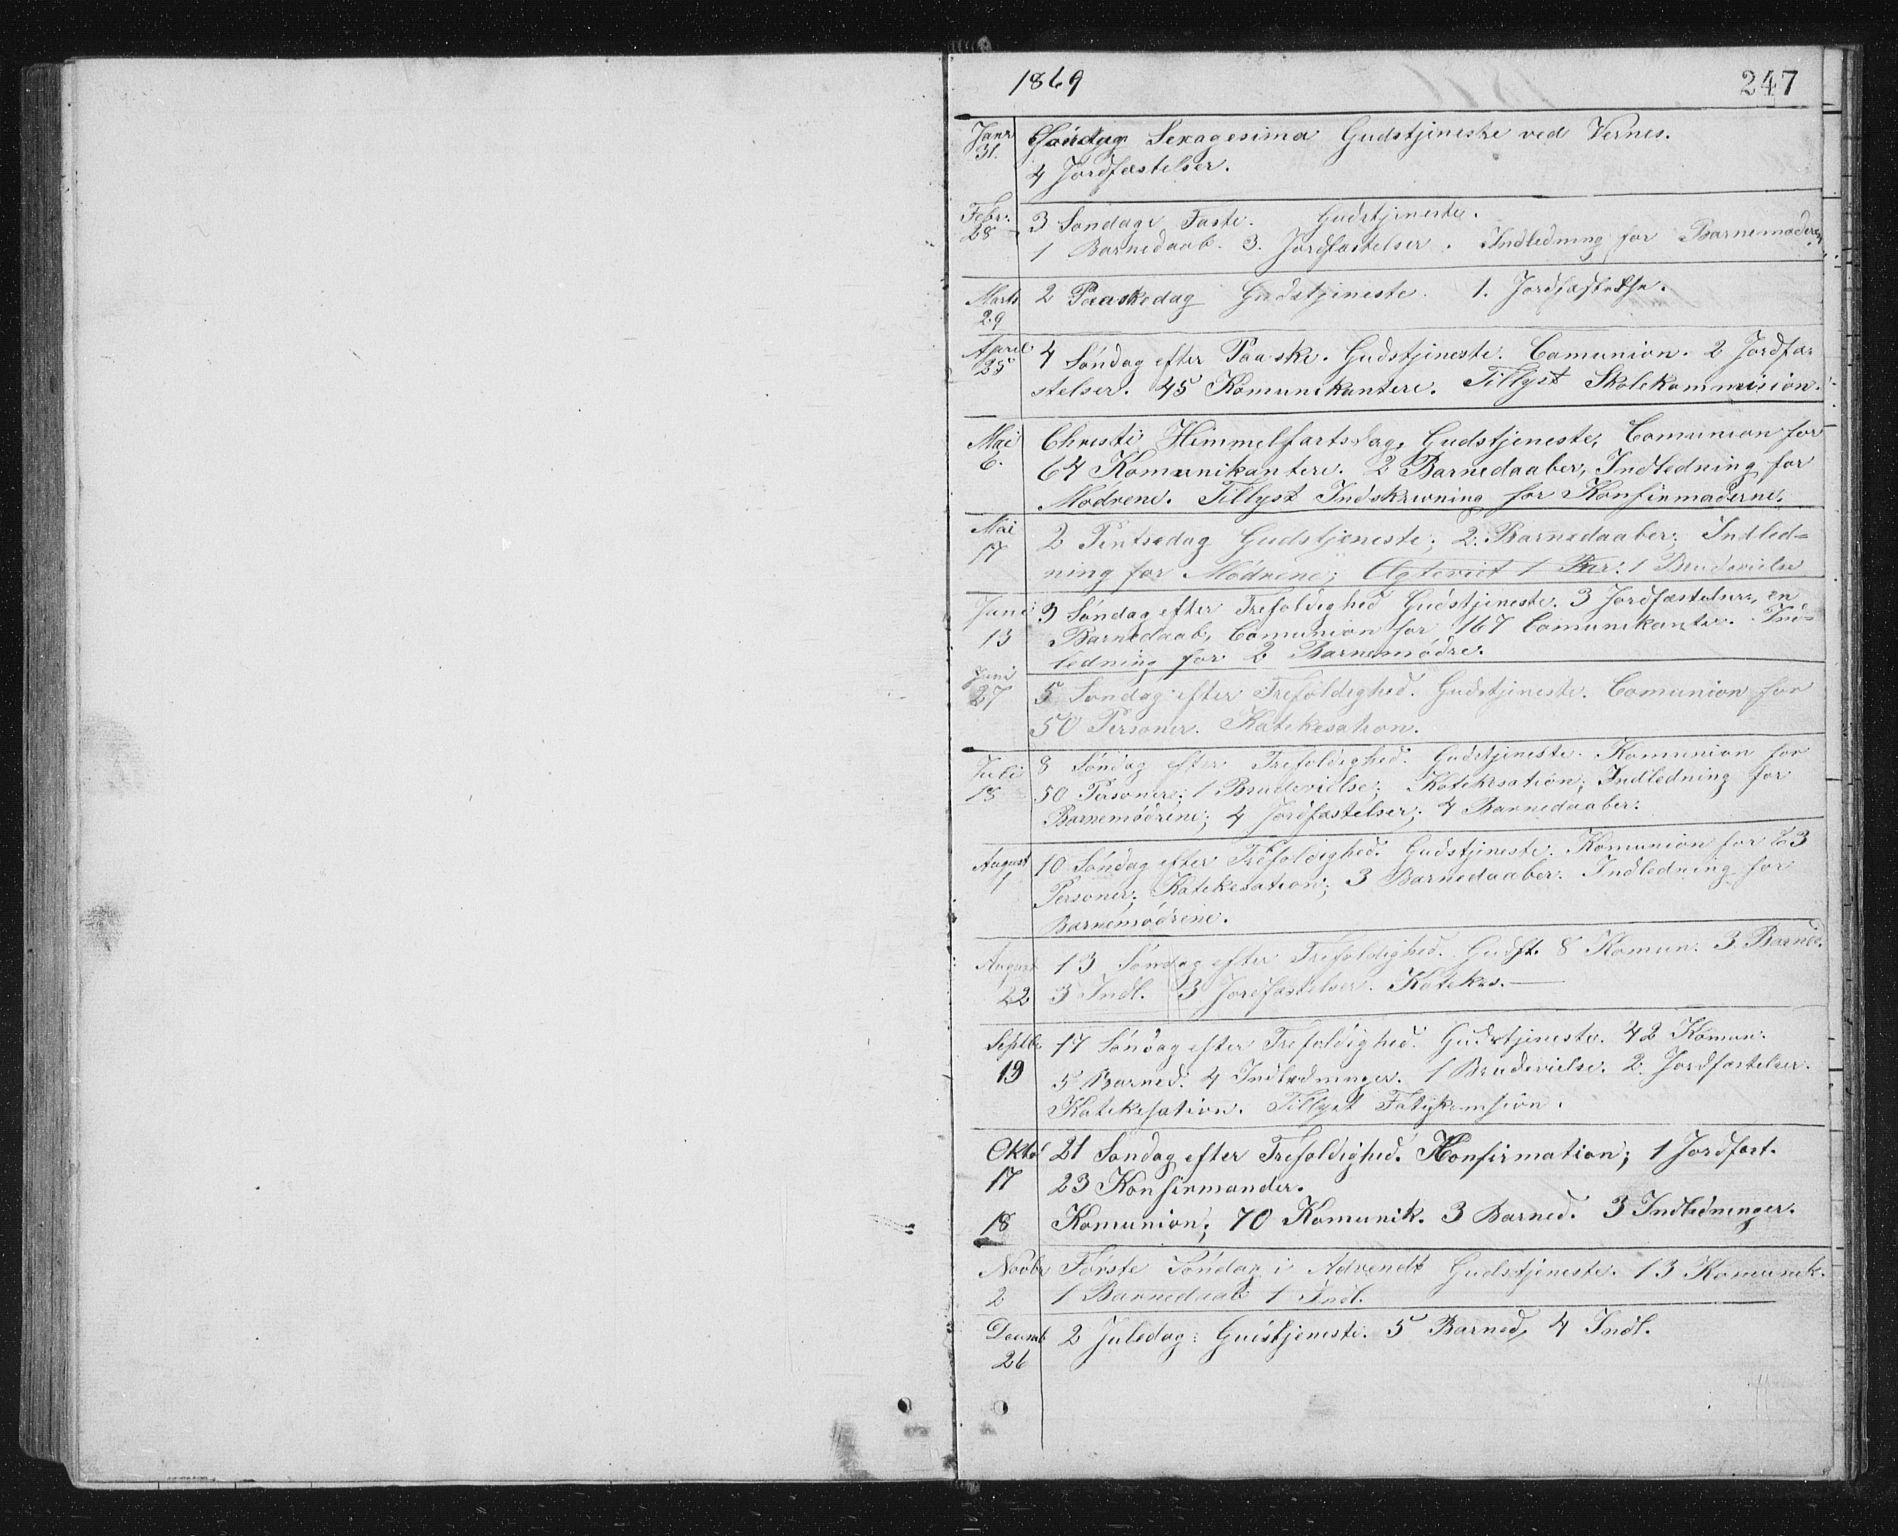 1869
247
Janr 31. Søndag Sexagesima Gudstjeneste ved Vernes.
4 Jordfæstelser.
Febr. 28 3 Søndag i Faste. Gudstjeneste.
1 Barnedaab. 3. Jordfæstelser. Indledning for Barnemoderen
Marts 29 2 Paaskedag Gudstjeneste. 1. Jordfæstelse.
April 25 4 Søndag efter Paaske. Gudstjeneste. Comunion. 2 Jordfæ
stelser. 45 Komunikantere. Tillyst Skolekommision.
Mai 6. Christi Himmelfartsdag, Gudstjeneste, Comunion for
64 Komunikantere. 2 Barnedaaber, Indledning for
Mødrene. Tillyst Indskrivning for Konfirmaderne.
Mai 17 2 Pintsedag Gudstjeneste; 2. Barnedaaber; Indled=
ning for Mødrene; Ægteviet 1 Par: 1 Brudevielse
Juni 13 3 Søndag efter Trefoldighed Gudstjeneste. 3 Jordfæstelser, en
Barnedaab, Comunion for 167 Comunikanter. Ind=
ledning for 2 Barnemødre.
Juni 27 5 Søndag efter Trefoldighed. Gudstjeneste. Comunion for
50 Personer. Katekesation.
Juli 18 8 Søndag efter Trefoldighed. Gudstjeneste. Komunion for
50 Personer; 1 Brudevielse; Katekesation; Indledning for
Barnemødrene; 4 Jordfæstelser; 4 Barnedaaber:
August 1 10 Søndag efter Trefoldighed. Gudstjeneste. Komunion for 23
Personer; Katekesation; 3 Barnedaaber. Indledning for
Barnemødrene.
August 22 13 Søndag efter Trefoldighed. Gudst. 8 Komun: 3 Barned.
3 Indl. 3 Jordfæstelser. Katekes.
Septbr 19 17 Søndag efter Trefoldighed. Gudstjeneste. 42 Komun:
5 Barned. 4 Indledninger. 1 Brudevielse. 2 Jordfæstelser.
Katekesation. Tillyst
Oktb 17 21 Søndag efter Trefoldighed. Konfirmation; 1 Jordfæst.
23 Konfirmander.
18 Komunion; 70 Komunik. 3 Barned. 3 Indledninger.
Novbr 2 Første Søndag i Advendt Gudstjeneste. 13 Komunik.
1 Barnedaab 1 Indl.
Decemb 26 2 Juledag: Gudstjeneste. 5 Barned, 4 Indl.